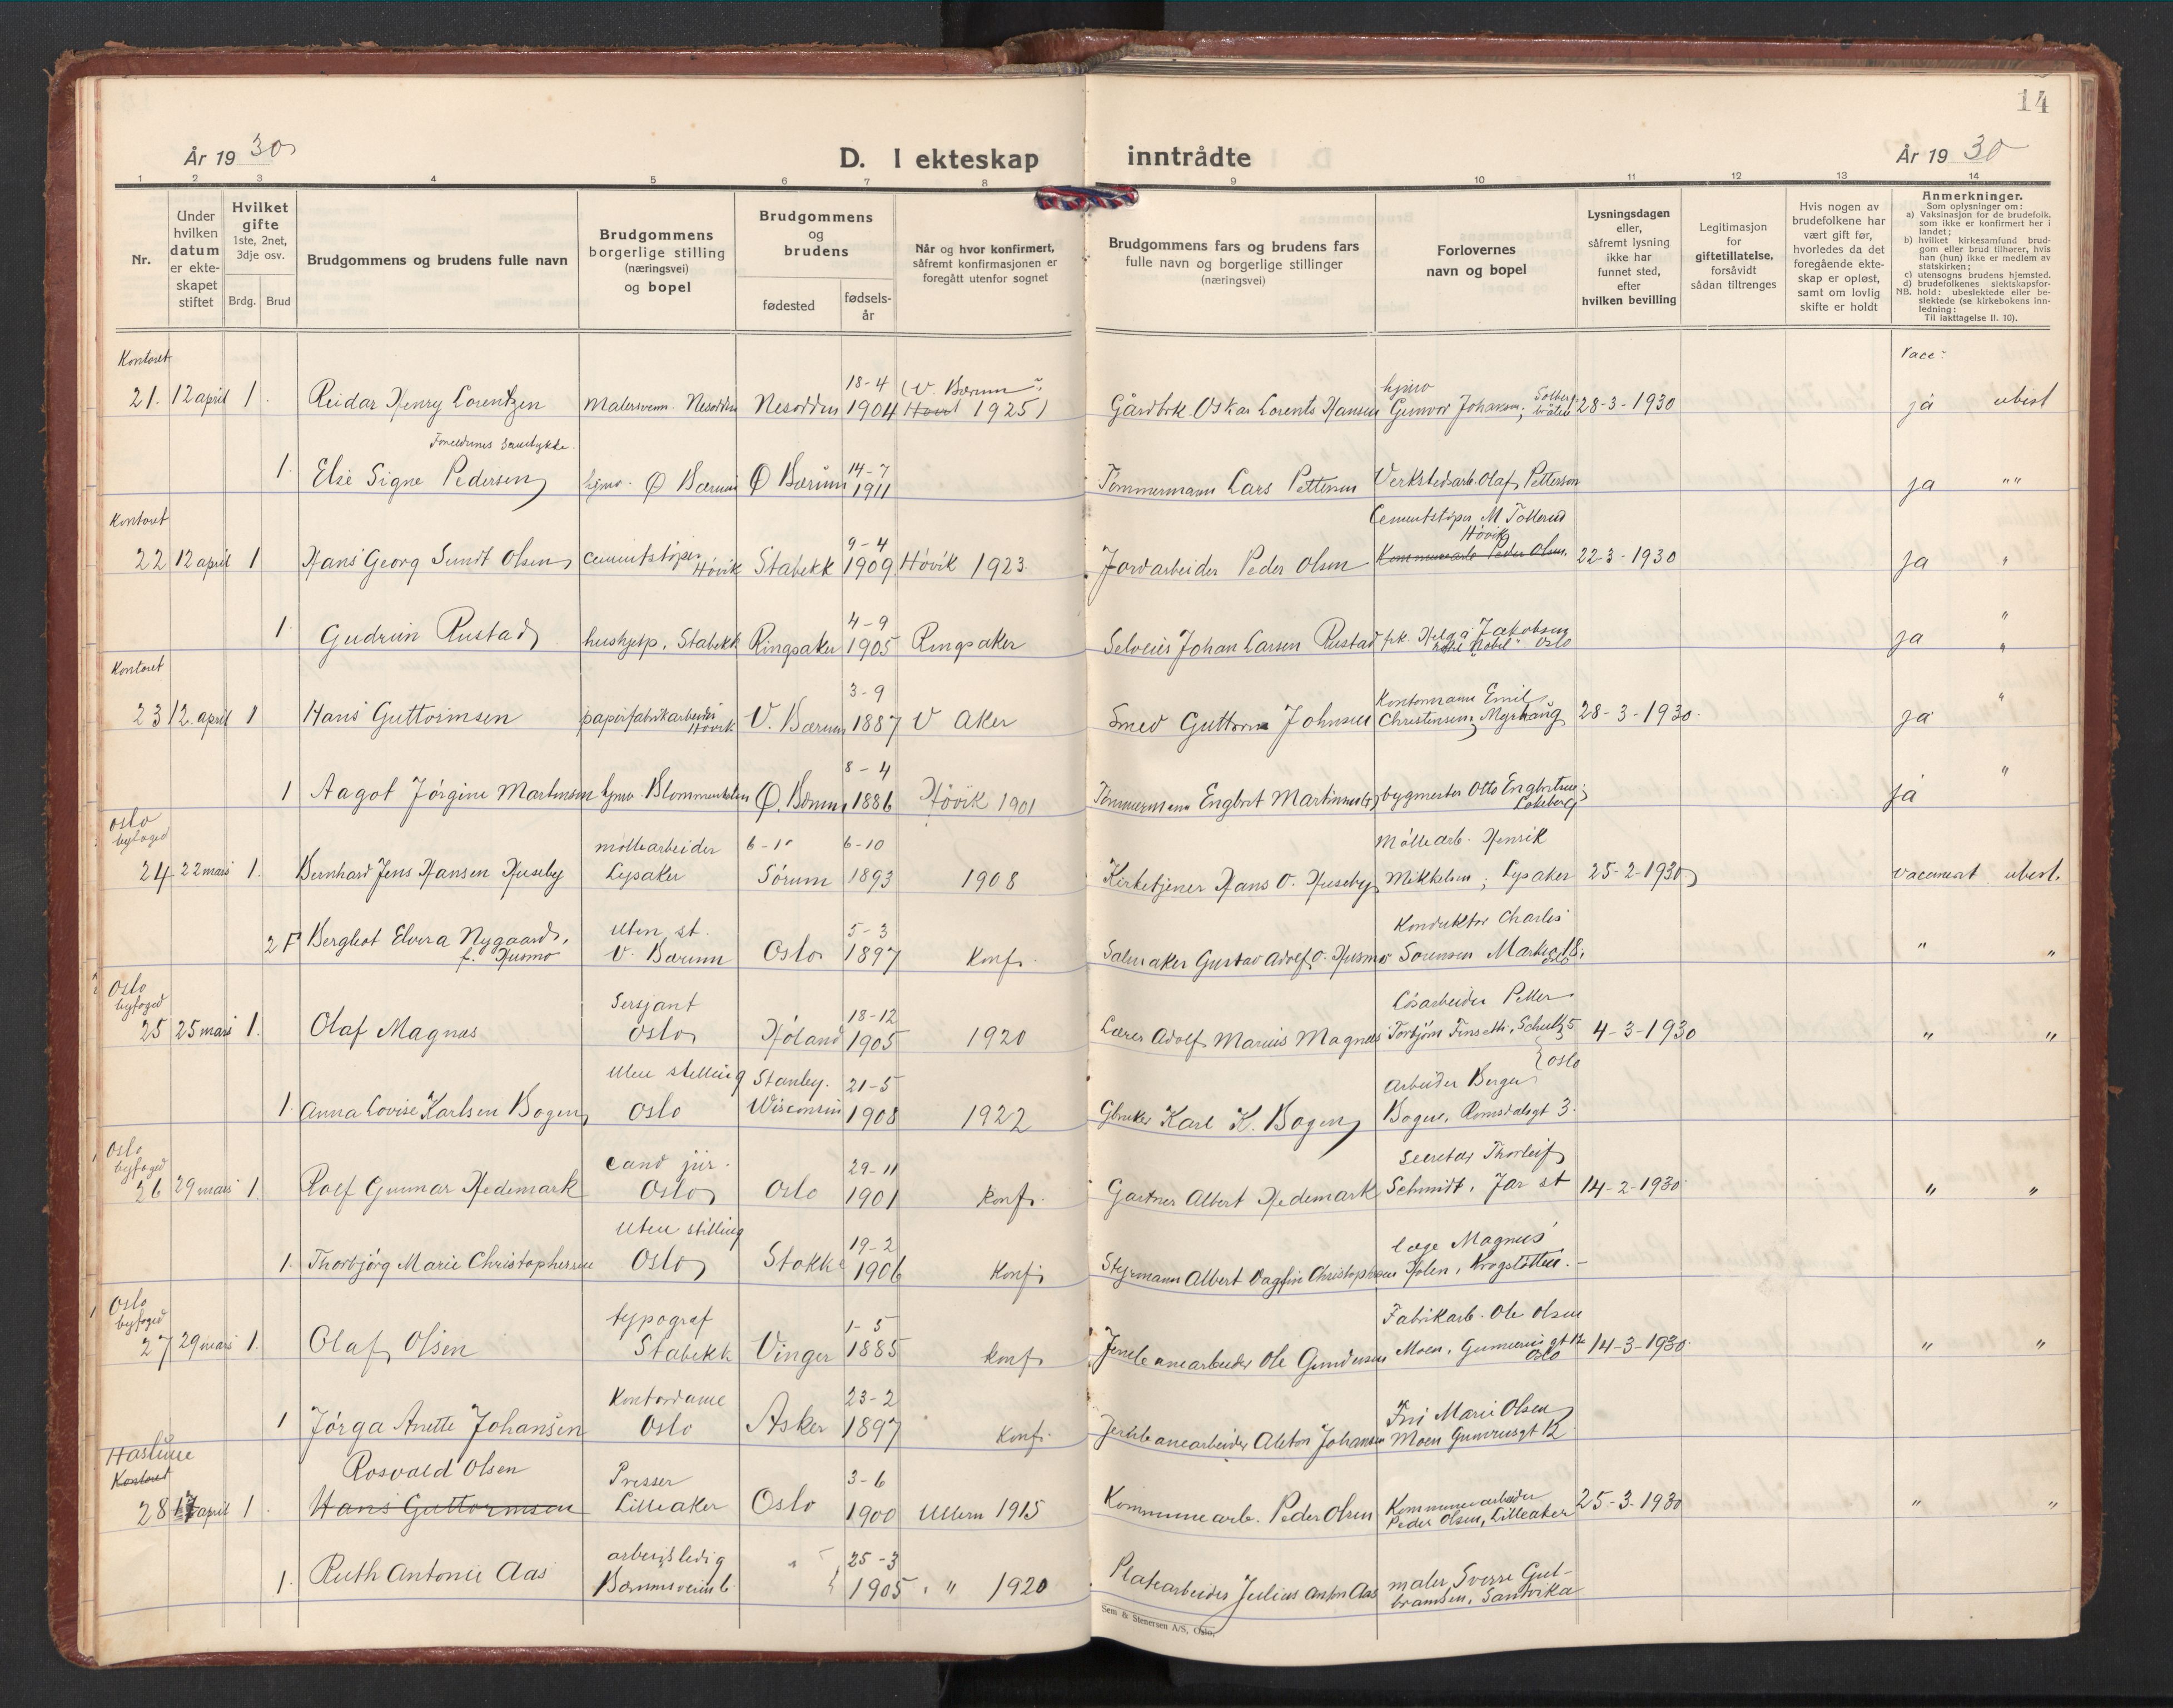 14
År 19 30
D. I ekteskap inntrådte
År 19 30
1 2 3 4 5 6 7 8 9 10 11 12 13 14
Nr.
Under hvilken datum er ekte-skapet stiftet
Hvilket gifte 1ste, 2net, 3dje osv.
Brdg. Brud
Brudgommens og brudens fulle navn
Brudgommens borgerlige stilling (næringsvei) og bopel
Brudgommens og brudens
fødested
fødsels-år
Når og hvor konfirmert, såfremt konfirmasjonen er foregått utenfor sognet
Brudgommens fars og brudens fars fulle navn og borgerlige stillinger (næringsvei)
Forlovernes navn og bopel
Lysningsdagen eller, såfremt lysning ikke har funnet sted, efter hvilken bevilling
Legitimasjon for giftetillatelse, forsåvidt sådan tiltrenges
Hvis nogen av brudefolkene har vært gift før, hvorledes da det foregående ekte-skap er opløst, samt om lovlig skifte er holdt
Anmerkninger.
Som oplysninger om:
a) Vaksinasjon for de brudefolk. som ikke er konfirmert her i landet;
b) hvilket kirkesamfund brud-gom eller brud tilhører, hvis han (hun) ikke er medlem av statskirken;
c) utensogns brudens hjemsted.
d) brudefolkenes slektskapsfor-hold: ubeslektede eller be-slektede (se kirkebokens inn-ledning:
NB.
Til iakttagelse II. 10).
Kontoret
Vacc:
21. 12 april 1. Reidar Henry Lorentzen Malersvenn. Nesodden Nesodden 18-4 1904 (V. Bærum 1925) Gårdbrk Oskar Lorents Hansen hjmv Gunvor Johansen; 28-3-1930 ja ubesl
Foreldrenes samtykke.
1. Else Signe Pedersen hjmv. Ø Bærum Ø Bærum 14-7 1911 Tømmermann Lars Pettersen Verkstedarb. Olaf Petterson ja " "
Kontoret
22 12 april 1 Hans Georg Sundt Olsen cementstøper Høvik Stabekk 9-4 1909 Høvik 1923 Jordarbeider Peder Olsen Cementstøper M Tollerud Høvik Kommunearb Peder Olsen. 22-3-1930 Ja "
1. Gudrun Rustad hushjelp. Stabekk Ringsaker 4-9 1905 Ringsaker Selveier Johan Larsen Rustad frk. Helga Jakobsen hotel "Nobel" Oslo ja "
Kontoret
23 12. april 1 Hans Guttormsen papirfabrikarbeider Høvik V. Bærum 3-9 1887 V Aker Smed Guttorm Johnsen Kontormann Emil Christensen, Myrhaug 28-3-1930. ja "
1 Aagot Jørgine Martinsen hjmv. Blommenholm Ø. Bærum 8-4 1886 Høvik 1901 Tømmermann Engbret Martinsen bygmester Otto Engbretsen; Løkeberg ja "
Oslo byfoged
24 22 mars 1. Bernhard Jens Hansen Huseby møllearbeider Lysaker Sørum 6-10 1893 1908 Kirketjener Hans O. Huseby Møllearb. Henrik Mikkelsen; Lysaker 25-2-1930 vaccinert ubesl.
2 F Bergliot Elvira Nygaard, f. Husmo uten st. V. Bærum Oslo 5-3 1897 Konf. Salmaker Gustav Adolf O. Husmo Konduktør Charles Sørensen " "
Oslo byfoged
25 25 mars 1. Olaf Magnas Sersjant Oslo Høland 18-12 1905 1920 Lærer Adolf Marius Magnæs Løsarbeider Petter Torbjørn 4-3-1930 " "
1. Anna Lovise Karlsen Bogen uten stilling Oslo Stanley. Wisconsin 21-5 1908 1922 Gbruker Karl K. Bogen arbeider Berger Bogen, Romsdalsgt 3. Oslo
Oslo byfoged
26 29 mars 1. Rolf Gunnar Hedemark cand jur. Oslo Oslo 29-11 1901 Konf. Gartner Albert Hedemark Secretær Thorleif Schmidt, Jar st 14-2-1930. " "
1. Thorbjørg Marie Christophersen uten stilling Oslo Stokke 19-2 1906 Konf. Styrmann Albert Dagfin Christophersen læge Magnus Holen,
Oslo byfoged
27 29 mars 1. Olaf Olsen typograf Stabekk Vinger 1-5 1885 Konf. Jernbanearbeider Ole Gundersen Fabrikarb. Ole Olsen Moen, Gunnerusgt 12 Oslo 14-3-1930. " "
1 Jørga Anette Johansen Kontordame Oslo Asker 23-2 1897 Konf. Jernbanearbeider Aleton Johansen Fru Marie Olsen Moen Gunnerusgt 12
Haslum
Kontoret
28 17 april 1. Rosvald Olsen Hans Guttormsen Presser Lilleaker Oslo 3-6 1900 Ullern 1915 Kommunearb. Peder Olsen Kommunearbeider Peder Olsen, Lilleaker 25-3-1930 " "
1. Ruth Antonie Aas arbeidsledig Bærumsveien " 25-3 1905 " " 1920 Platearbeider Julius Anton Aas maler Sverre Gul-bransen, Sandvika
Sem & Stenersen A/S, Oslo.